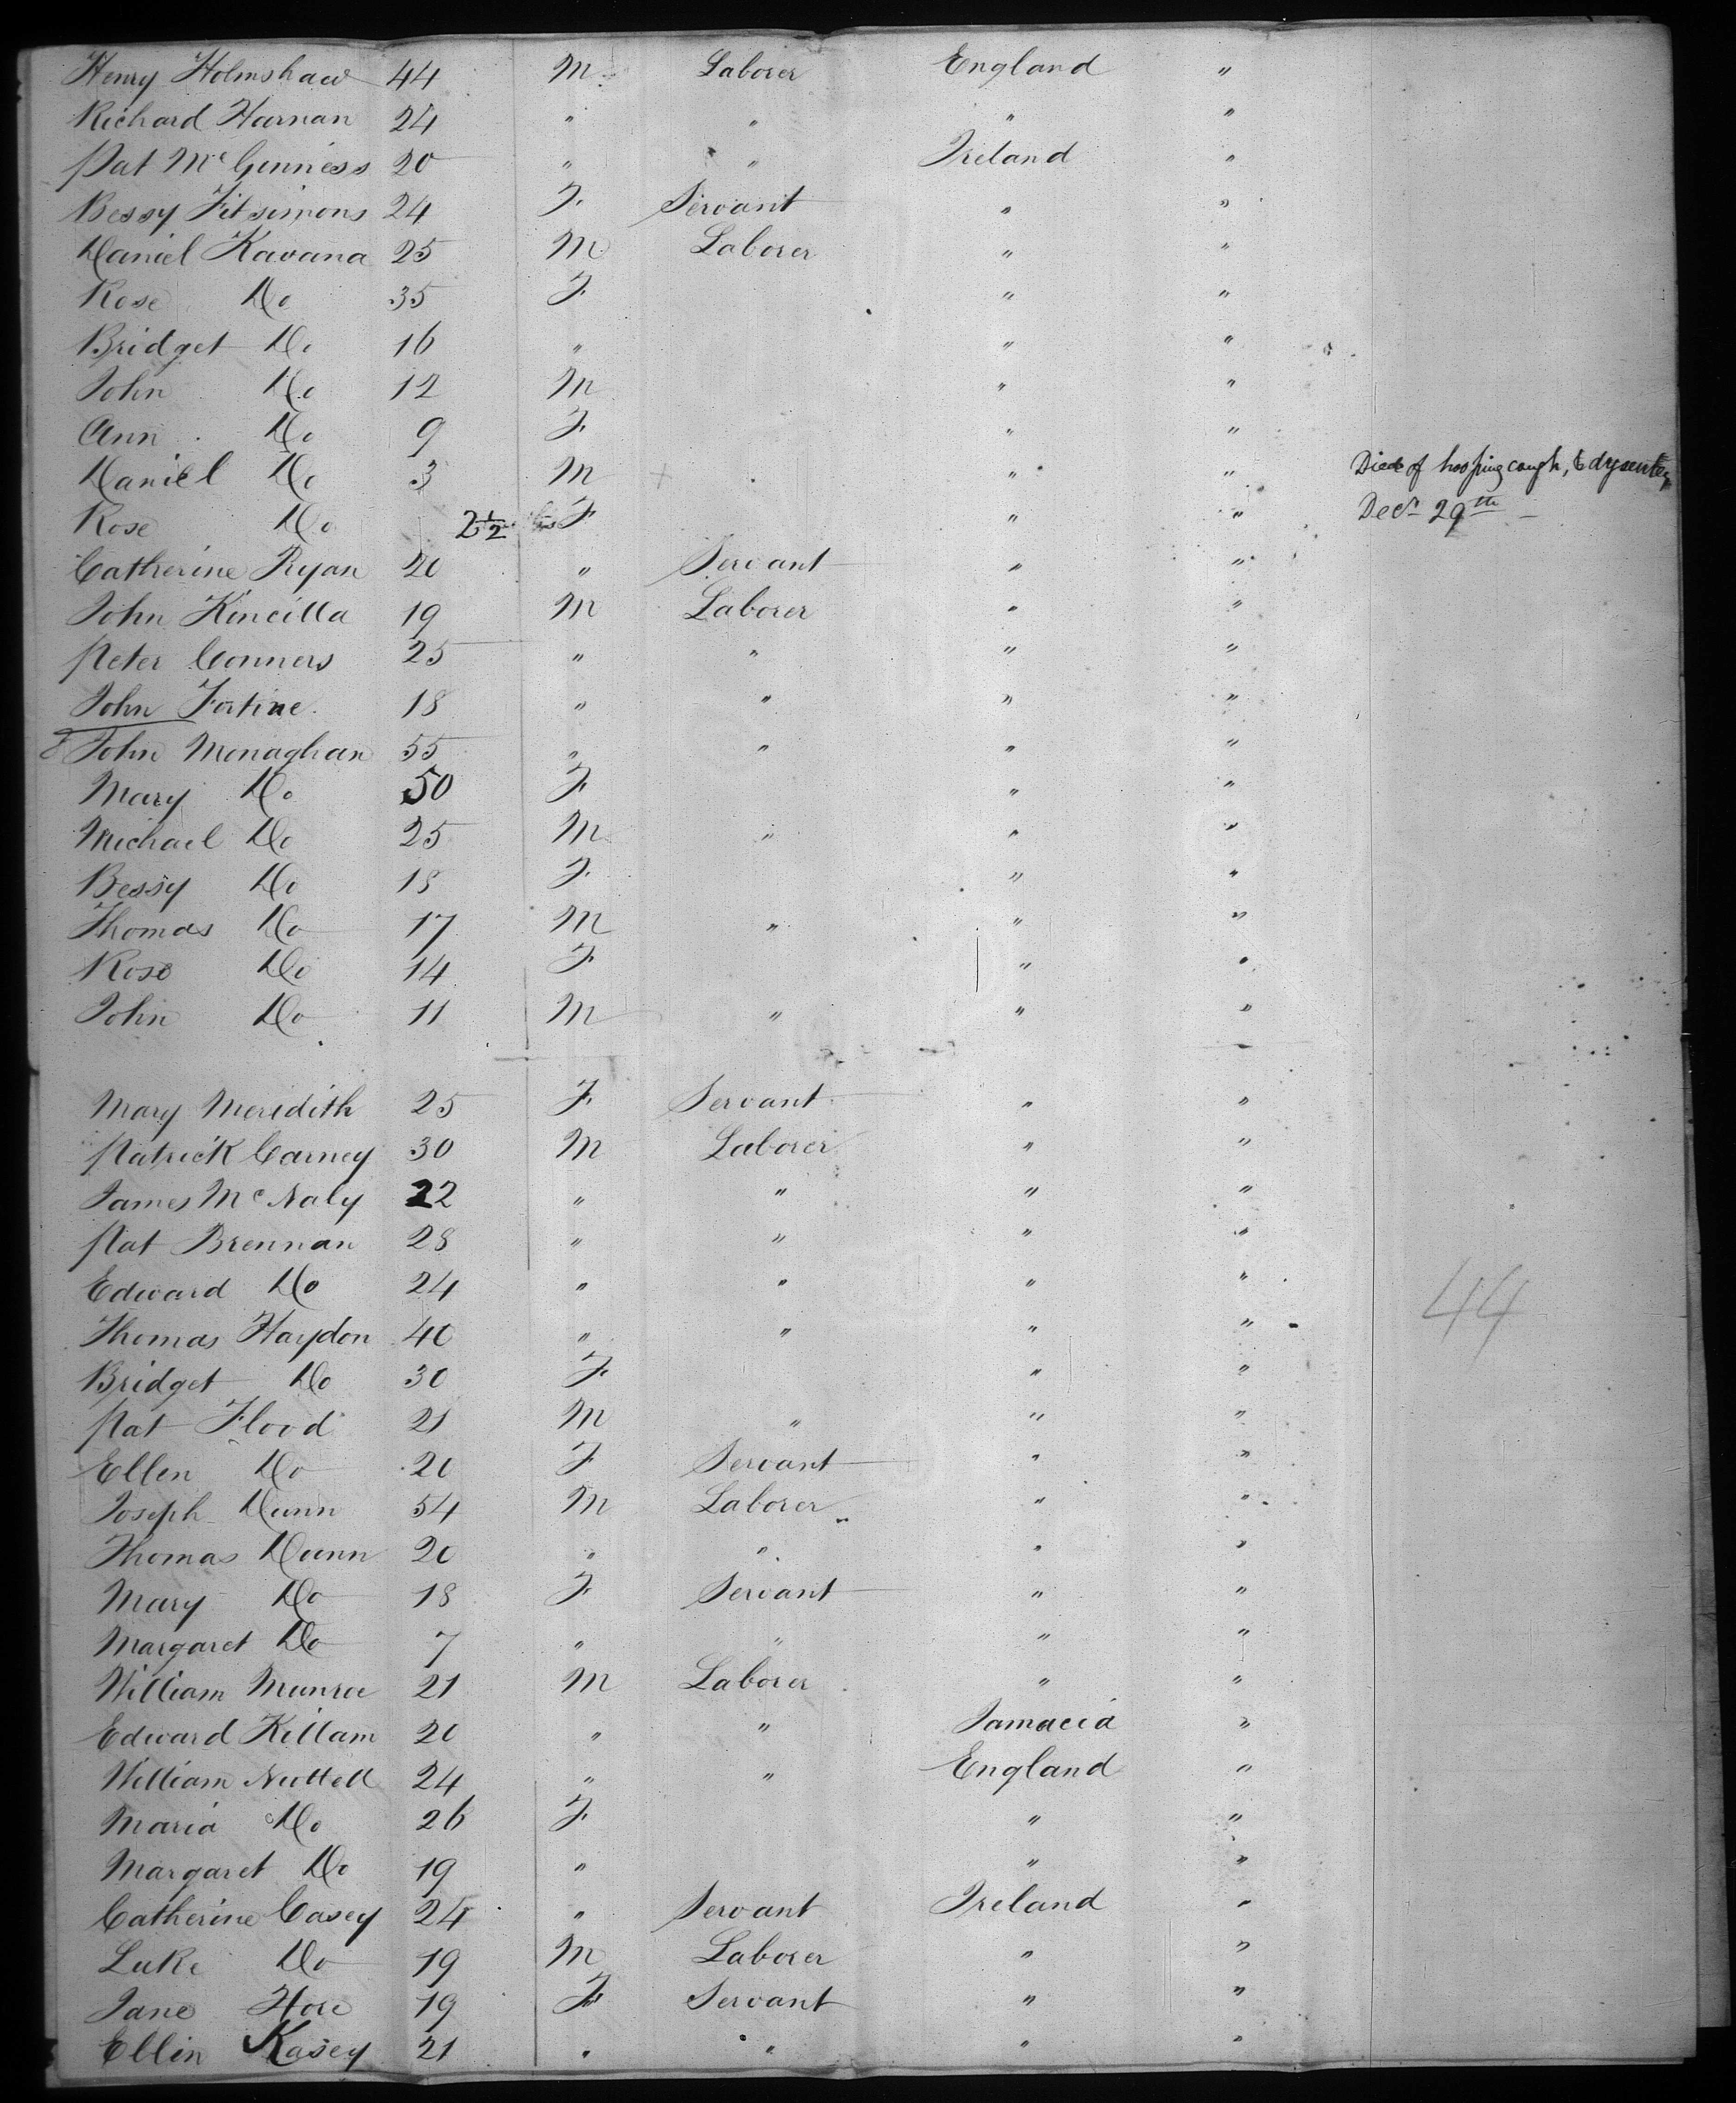 Henry Holmshaw 44 M Laborer England "
Richard Harnan 24 " " " "
Pat McGinness 20 " " Ireland "
Bessy Fitsimons 24 F. Servant " "
Daniel Kavana 25 M Laborer " "
Rose Do 35 F. " "
Bridget Do 16 " " "
John Do 12 M " "
Ann Do 9 F. " "
Daniel Do 3 M + " " Died of hooping cough, & dysentery
Rose Do 2½ F " " Decr 29th
Catherine Ryan 20 " Servant " "
John Kincilla 19 M Laborer " "
Peter Conners 25 " " " "
John Fortine 18 " " " "
John Monaghan 55 " " " "
Mary Do 50 F. " "
Michael Do 25 M " " "
Bessy Do 18 F. " "
Thomas Do 17 M " " "
Rose Do 14 F. " "
John Do 11 M " " "
Mary Meridith 25 F. Servant " "
Patrick Carney 30 M Laborer " "
James McNaly 22 " " " "
Pat Brennan 28 " " " "
Edward Do 24 " " " "
44
Thomas Haydon 40 " " " "
Bridget Do 30 F. " "
Pat Flood 21 M " " "
Ellen Do 20 F Servant " "
Joseph Dunn 54 M Laborer " "
Thomas Dunn 20 " " " "
Mary Do 18 F Servant " "
Margaret Do 7 " " " "
William Munroe 21 M Laborer " "
Edward Killam 20 " " Jamacia "
William Nuttell 24 " " England "
Maria Do 26 F. " "
Margaret Do 19 " " "
Catherine Casey 24 " Servant Ireland "
Luke Do 19 M Laborer " "
Jane Hore 19 F Servant " "
Ellin Kasey 21 " " " "